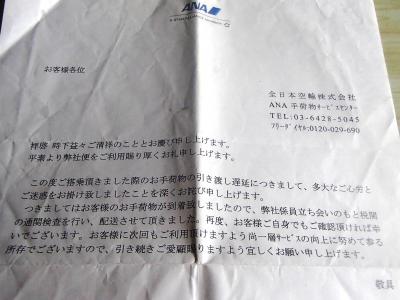 ANA
お客様各位
全日本空輸株式会社
ANA 手荷物サービスセンター
TEL:03-6428-5045
フリーダイヤル:0120-029-690
拝啓 時下益々ご清祥のこととお慶び申し上げます。
平素より弊社便をご利用賜り厚くお礼申し上げます。
この度ご搭乗頂きました際のお手荷物の引き渡し遅延につきまして、多大なご心労と
ご迷惑をお掛け致しましたことを深くお詫び申し上げます。
つきましてはお客様のお手荷物が到着致しましたので、弊社係員立ち会いのもと税関
の通関検査を行い、配送させて頂きました。再度、お客様ご自身でもご確認頂ければ幸
いでございます。お客様に次回もご利用頂けますよう尚一層サービスの向上に努めて参る
所存でございますので、引き続きご愛顧賜りますよう宜しくお願い申し上げます。
敬具